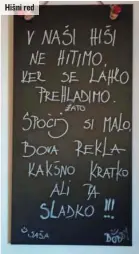 Hišni red
V NAŠI HIŠI
NE HITIMO,
KER SE LAHKO
PREHLADIMO.
ZATO
STOČJ SI MALO
BOVA REKLA
KAKŠNO KRATKO
ALI PA
SLADKO !!!
SAŠA